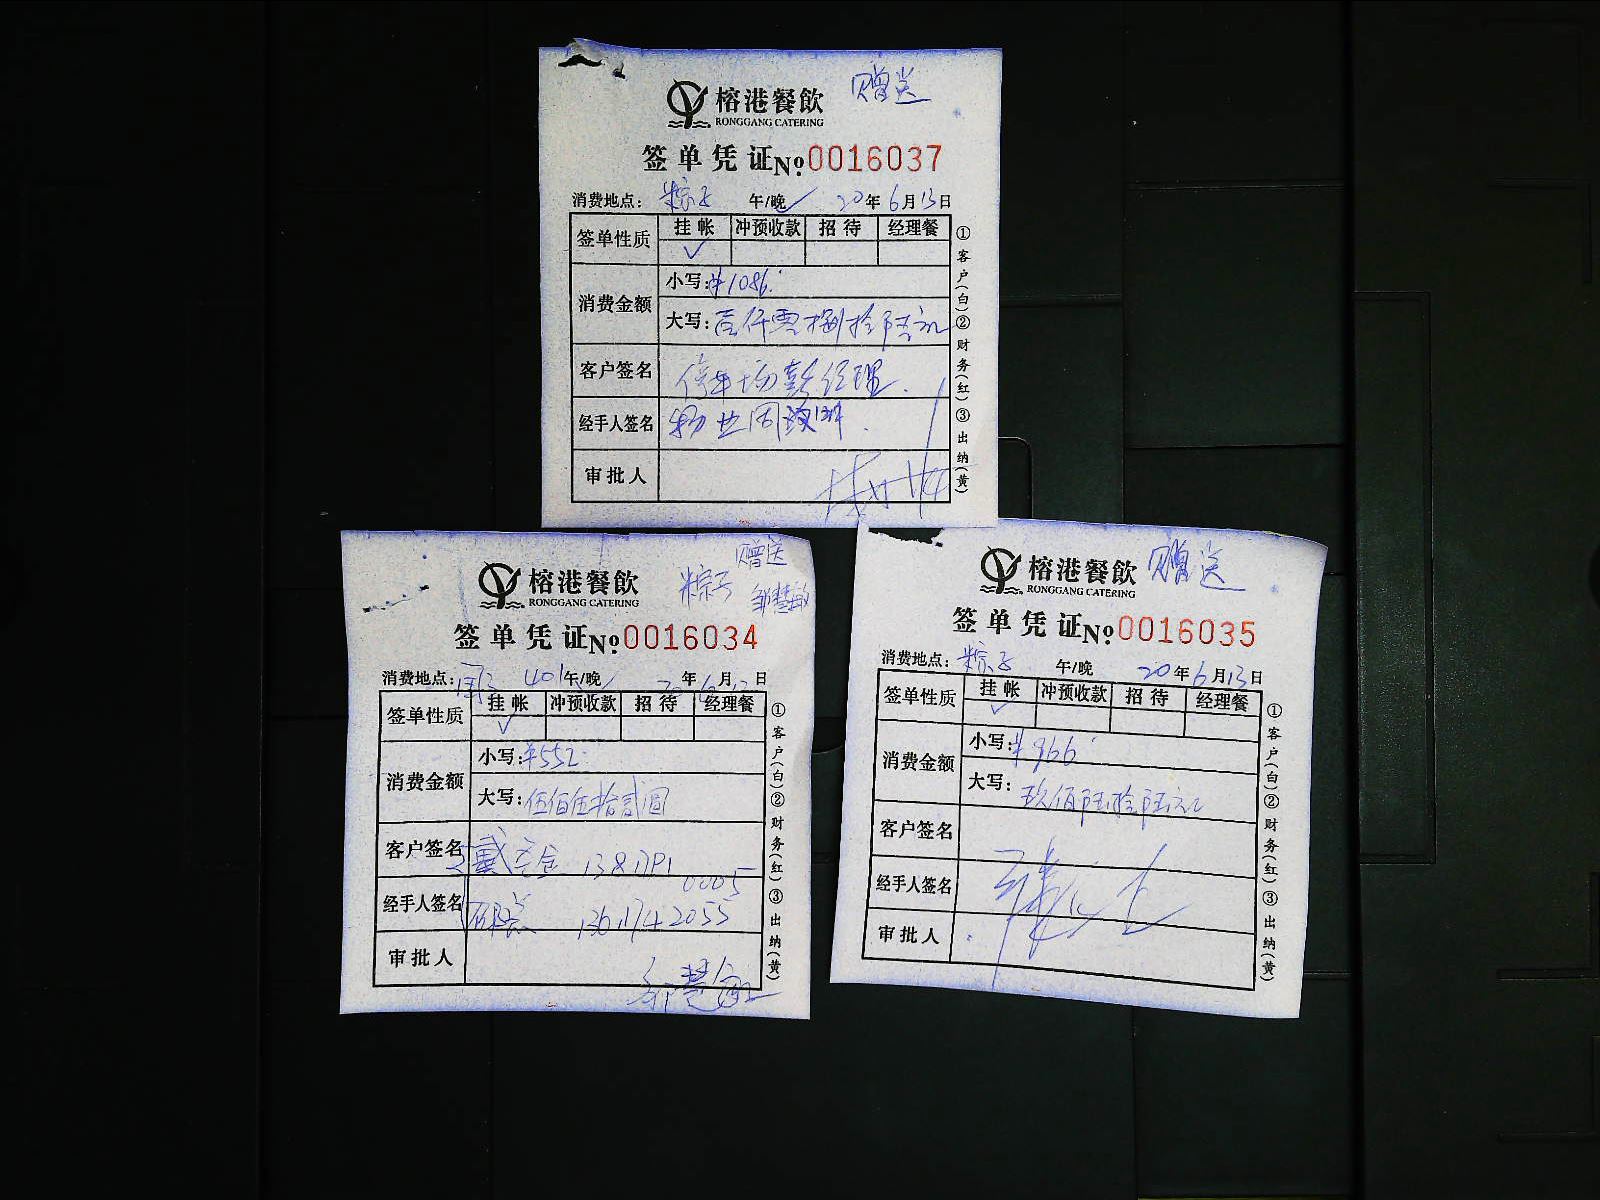 榕港餐飲 赠送
RONGGANG CATERING
签单凭证 No. 0016037
消费地点: 粽子 午/晚 ✓ 20年6月13日
签单性质 挂帐 冲预收款 招待 经理餐
✓
消费金额 小写: ¥1086.
大写: 壹仟零捌拾陆元
客户签名 停车场彭经理.
经手人签名 物业周
审批人
①客户(白)②财务(红)③出纳(黄)
榕港餐飲 粽子 赠送 邹慧敏
RONGGANG CATERING
签单凭证 No. 0016034
消费地点: 401 午/晚 年 月 日
签单性质 挂帐 冲预收款 招待 经理餐
✓
消费金额 小写: ¥552.
大写: 伍佰伍拾贰圆
客户签名 戴 金
经手人签名 1361742055
审批人 邹慧敏
①客户(白)②财务(红)③出纳(黄)
榕港餐飲 赠送
RONGGANG CATERING
签单凭证 No. 0016035
消费地点: 粽子 午/晚 20年6月13日
签单性质 挂帐 冲预收款 招待 经理餐
✓
消费金额 小写: ¥966.
大写: 玖佰陆拾陆元
客户签名
经手人签名
审批人
①客户(白)②财务(红)③出纳(黄)